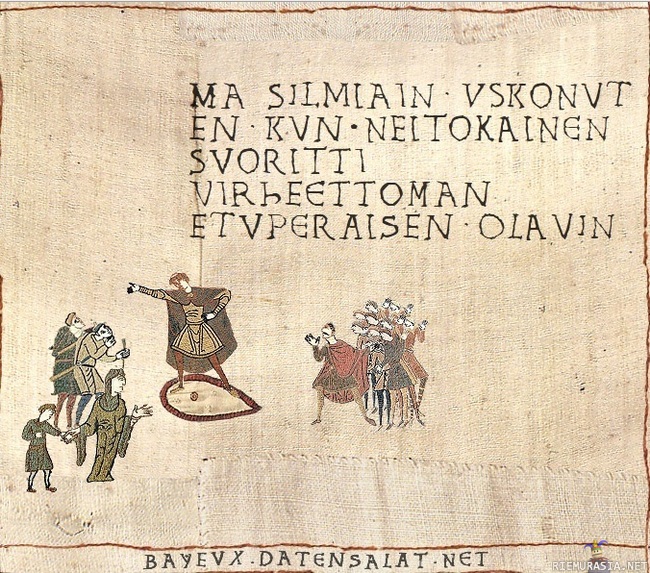 MA SILMIAIN · VSKONVT
EN · KVN · NEITOKAINEN
SVORITTI
VIRHEETTOMAN
ETVPERAISEN · OLAVIN
BAYEVX · DATENSALAT · NET
RIEMURASIA.NET